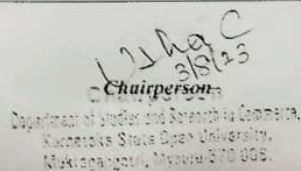 Usha C
3/8/23
Chairperson
Chairperson
Department of Studies and Research in Commerce,
Karnataka State Open University,
Mukthagangotri, Mysuru-570 006.